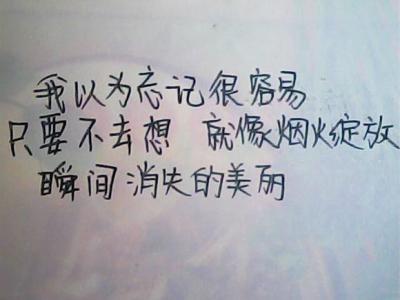 我以为忘记很容易
只要不去想 就像烟火绽放
瞬间消失的美丽